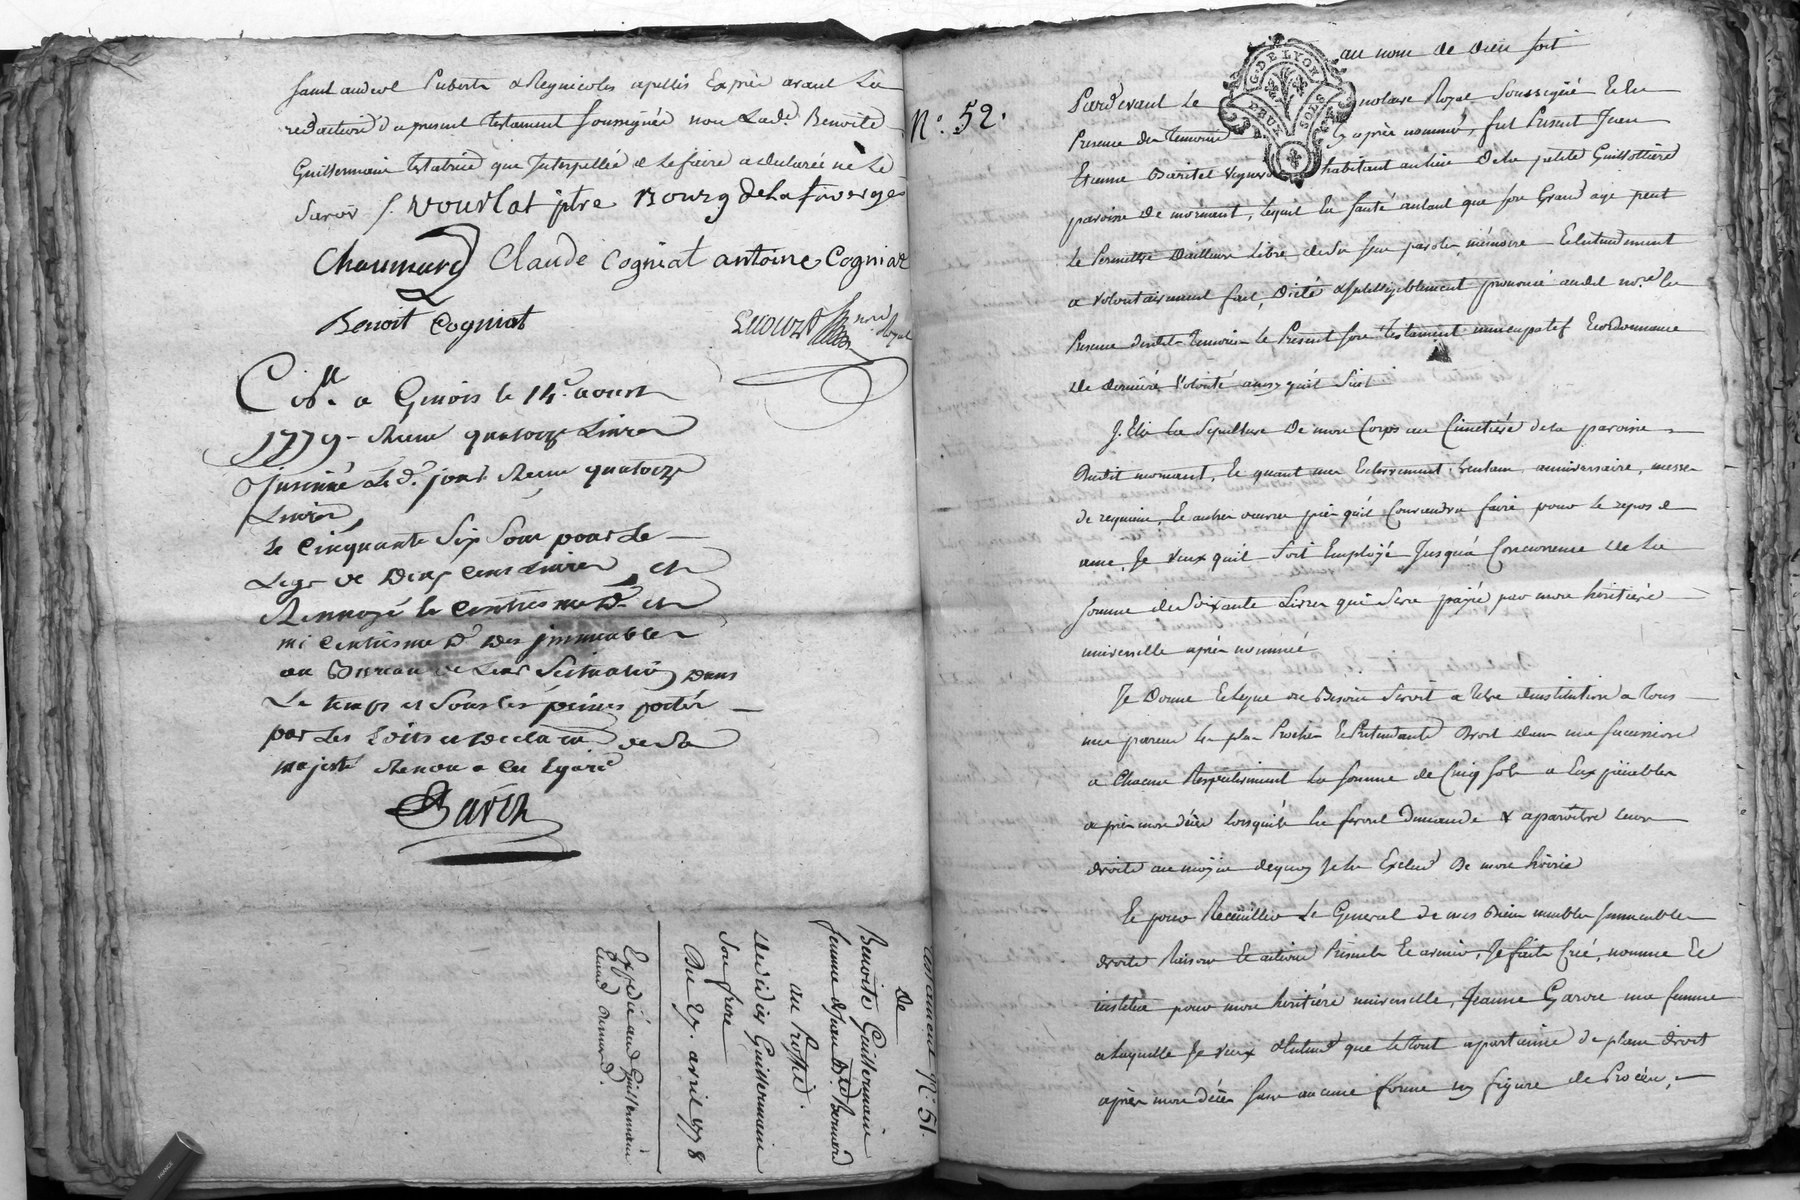 saint andeol Puberts & Regnicoles apellés Exprès avant La
redaction du present testament soussignés non Lade. Benoite
Guillermain testatrice que Interpellée de le faire a declaré ne Le
savoir /. vourlat ptre Bourg De la faverge
Chaumard Claude Cogniat antoine Cogniat
Benoit Cogniat
nore Royal
Colle. a Givois le 14e. aoust
1779 - Recu quatorze Livres
Insinué Led. jour Recu quatorze
Livres
Et Cinquante Six Sous pour Le
Legs de Deux Cens Livres, et
Renvoyé le Centiesme D. et
mi Centiesme D. Des jmmeubles
au Bureau de Leur Scituation Dans
Le temps et Sous Les peines portés
par Les Loix et Declaron de Sa
majesté Rendue a Cet Egard
Testament No. 51.
De
Benoite Guillermain
femme de Jean Bte Bernard
au Proffit
de Guillermain
Son frere
Du 27. avril 1778
Expedié aud Guillermain
No. 52.
au nom de Dieu soit
G. DE LYON
DEUX SOLS
Pardevant Le notaire Royal Soussigné Et En
Presence des temoins cy après nommés, fut Present Jean
Etienne Baritel vigneron habitant au lieu De la petite Guillottiere
paroisse De mornant, Lequel En Santé autant que son Grand age peut
Le Permettre D'ailleurs Libre de sa Jeu parole mémoire Et Entendement
a volontairement fait, Dicté & Intelligiblement prononcé audit nore. En
Presence desdits temoins Le Present son testament nuncupatif Et ordonnance
de derniere Volonté ainsy qu'il Suit
J. Elis La Sepulture De mon Corps au Cimetière de la paroisse
Dudit mornant, Et quant aux Enterrement, trentain, anniversaire, messes
de requiem, Et autres oeuvres pies qu'il Conviendra faire pour le repos de
ame, Je veux qu'il Soit Employé Jusqu'à Concurrence de La
somme de Soixante Livres qui Sera payée par mon heritière
universelle après nommée
Je Donne Et Legue ou Besoin Seroit a titre d'institution a tous
mes parens les plus Proches Et Prétendants Droit dans ma succession
a chacun Respectivement La somme de Cinq Sols a Eux païables
après mon décès Lorsqu'ils En feront Demande & aparoitre Leurs
droits au moyen dequoy Je les Exclud De mon hoirie
Et pour Recueillir Le General de mes Biens meubles Immeubles
droits Raisons Et actions Presents Et avenir, J'ai fait Créé, nommé Et
institué pour mon heritière universelle, Jeanne Garon ma femme
a Laquelle Je veux & Entend que Le tout apartienne de plein droit
après mon décès sans aucune forme ny figure de Procès,